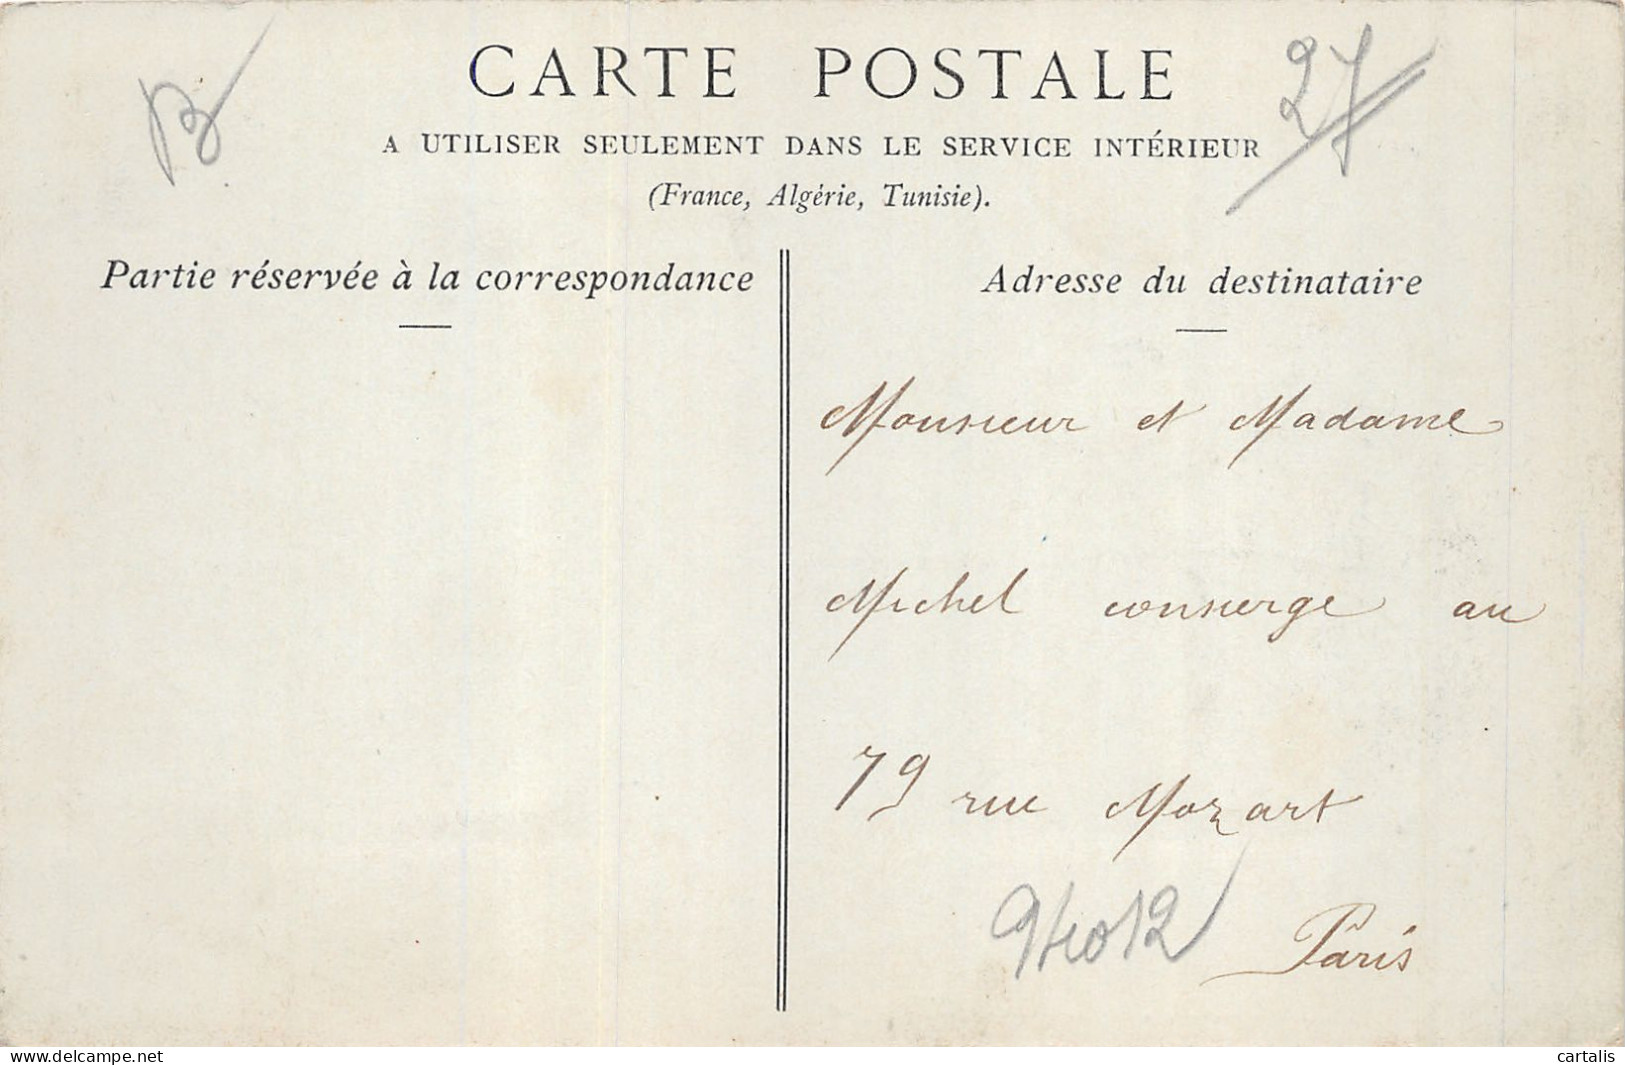 CARTE POSTALE
A UTILISER SEULEMENT DANS LE SERVICE INTÉRIEUR
(France, Algérie, Tunisie).
B
27
Partie réservée à la correspondance
Adresse du destinataire
Monsieur et Madame
Michel consierge au
79 rue Mozart
Paris
delcampe.net
cartalis